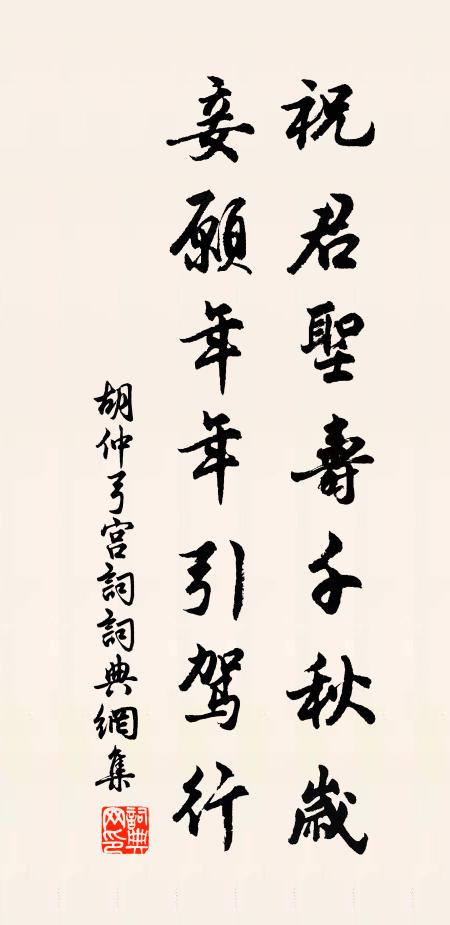 祝君聖壽千秋歲
妾願年年引駕行
胡仲弓宮詞詞典網集
詞典網印